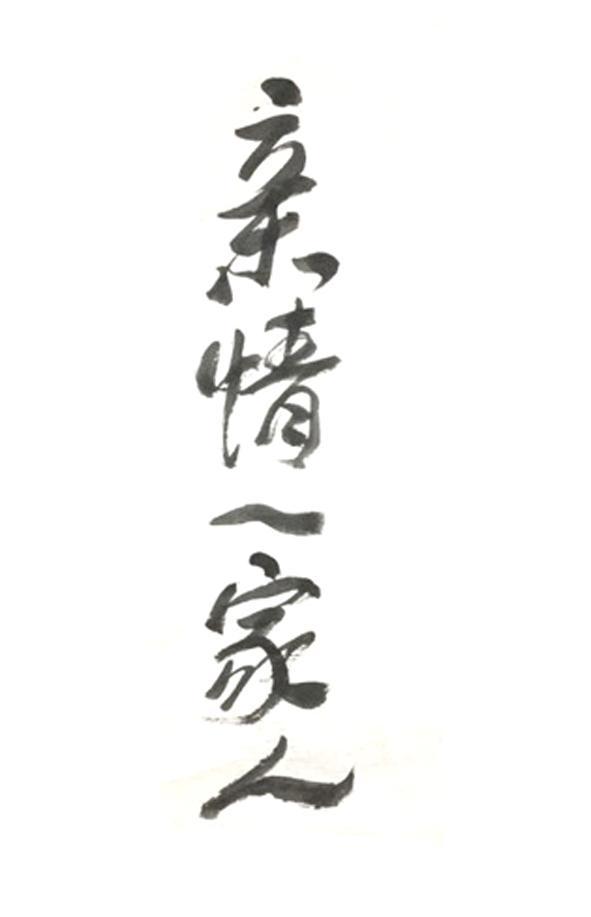 亲情一家人